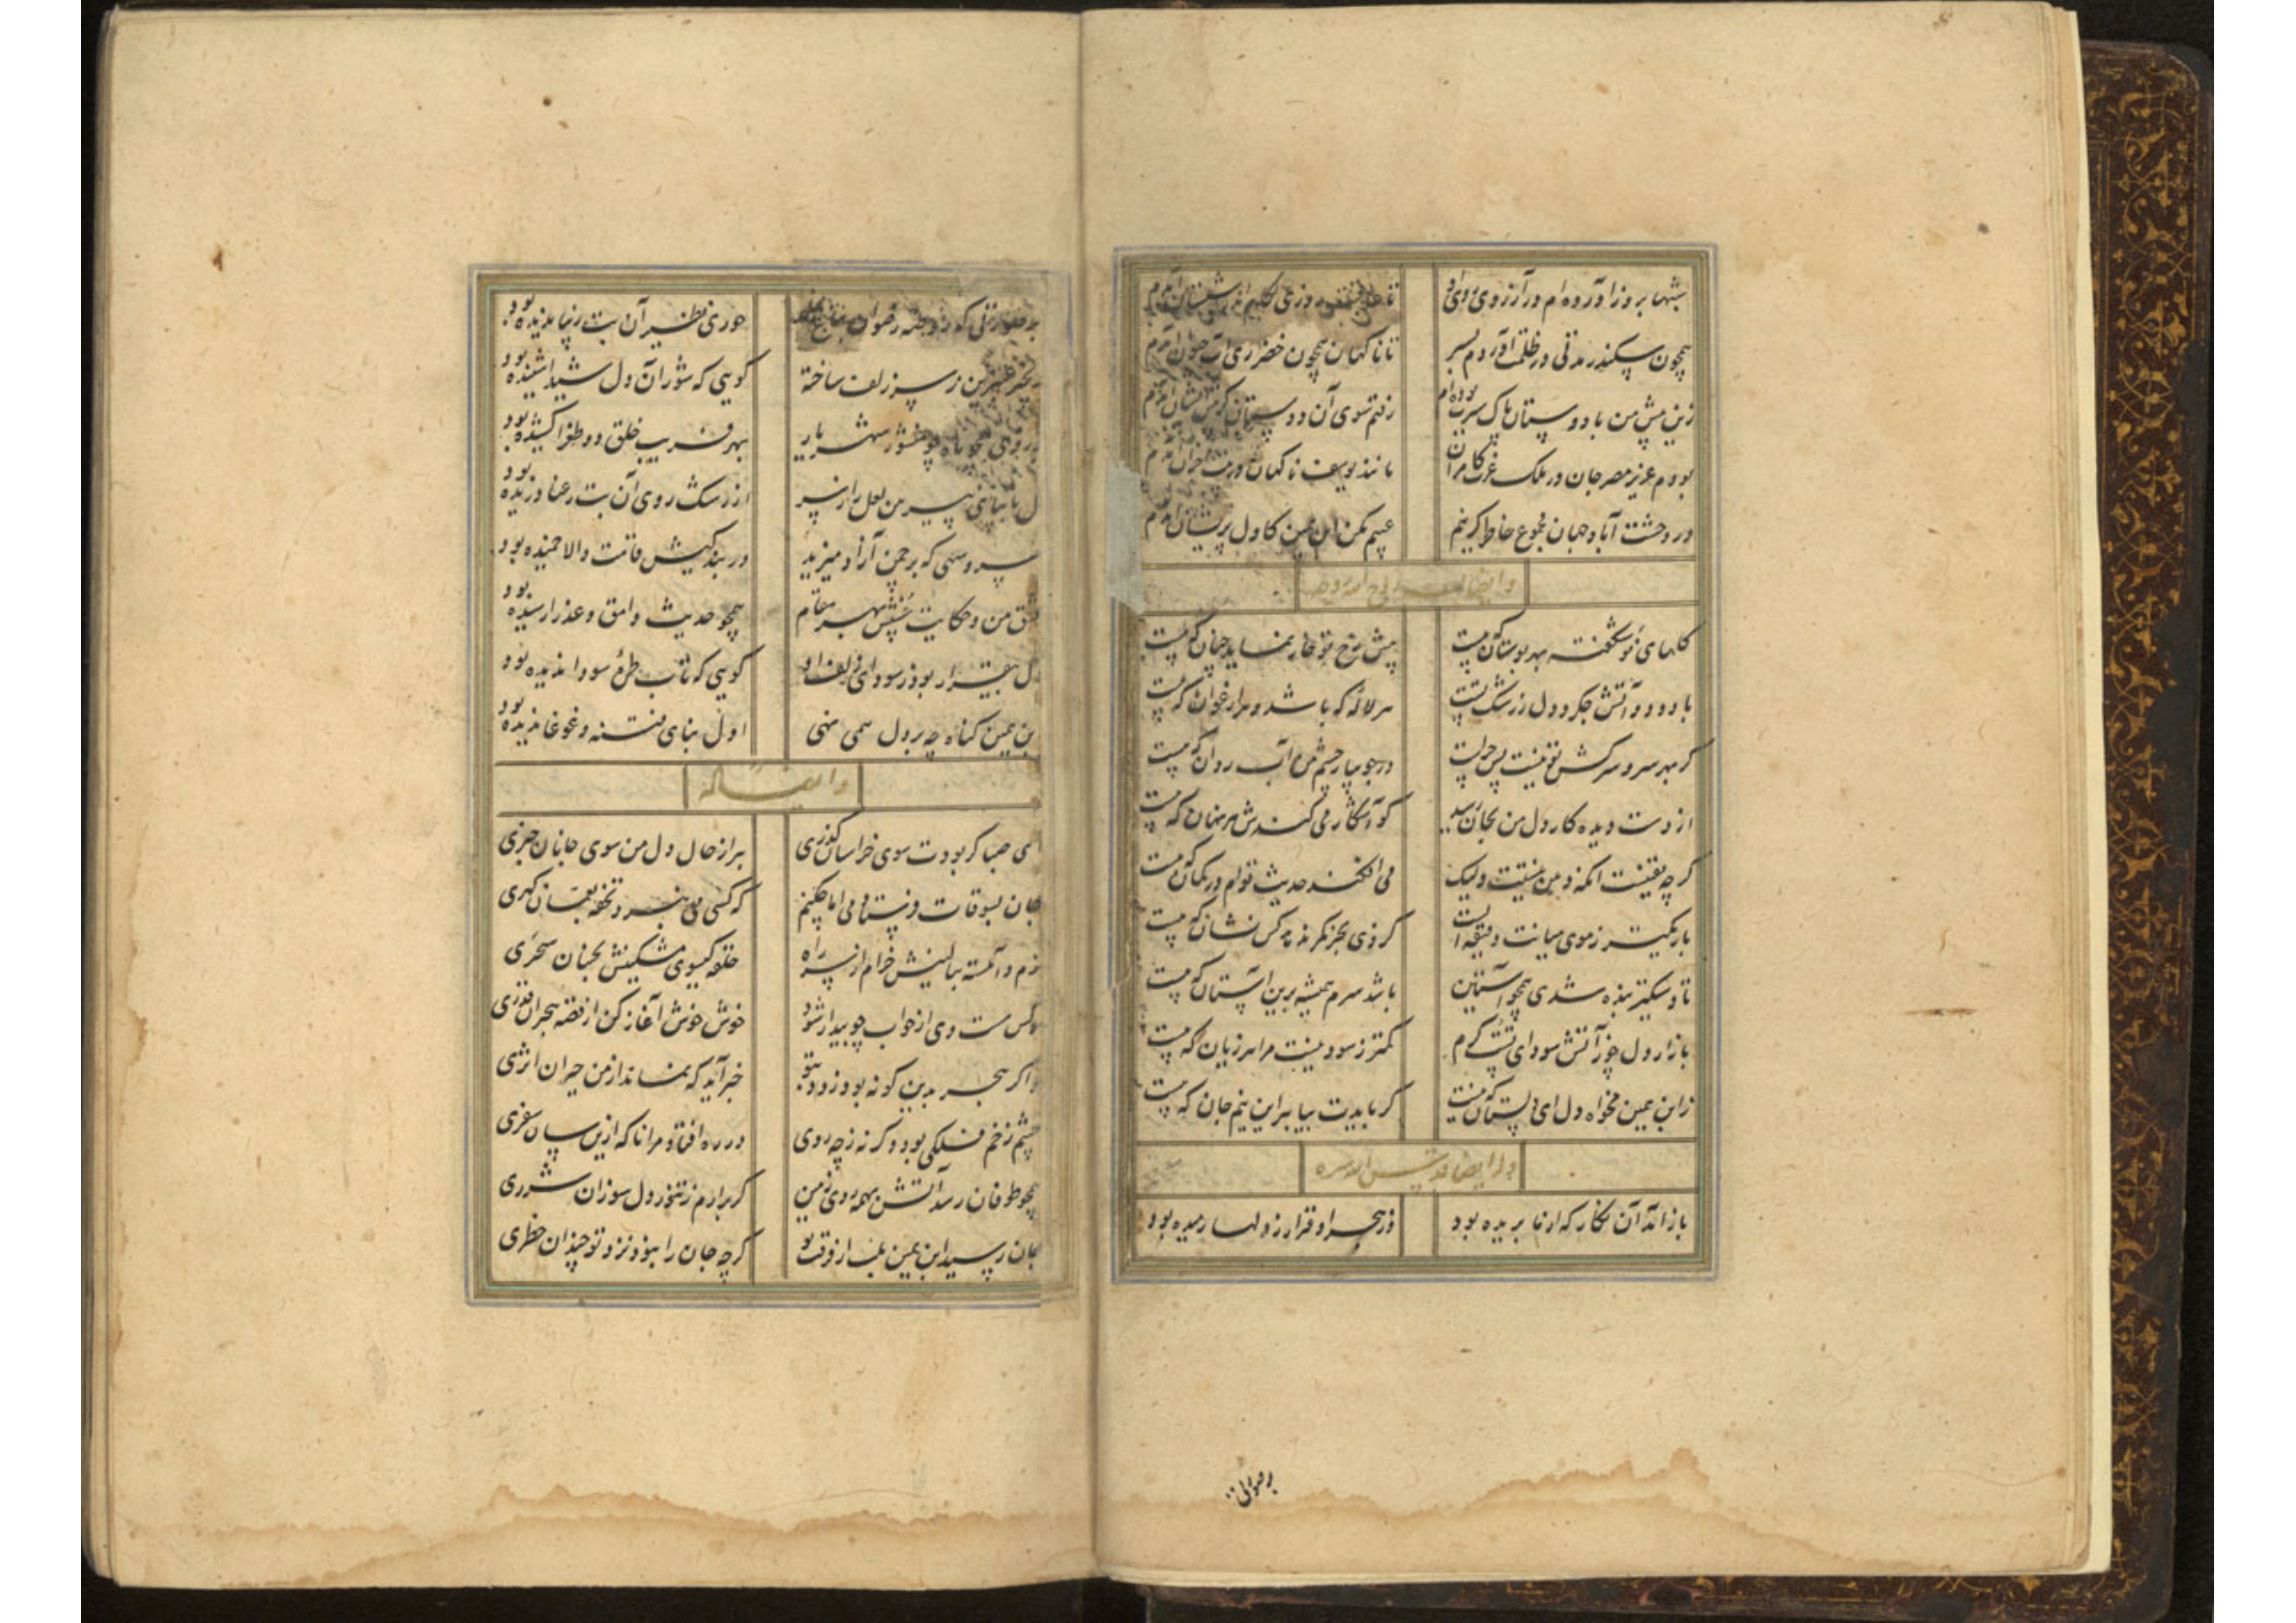 شبها بروز آورده‌ام در آرزوی روی او
تا روزی
همچون سکندر مدتی در ظلمت آوردم بسر
تا ناگهان همچون خضر زی آب حیوان آمدم
زین پیش من با دوستان پاک سیرت بوده‌ام
رفتم سوی آن دوستان آمدم
بودم عزیز مصر جان در ملک عزت کامران
مانند یوسف ناگهان آمدم
در دهشت آباد جهان مجموع خاطر کر نیم
عیبم مکن ابن یمین کاول پریشان آمدم
وایضا
گلهای نوشکفته بهر بوستان که هست
پیش رخ تو خار نماید چنان که هست
با دود و آتش جگر و دل ز رشک تست
هر لاله که باشد و هر ارغوان که هست
گر مهر سرو سرکش تو نیست پس چراست
در جویبار چشم من آب روان که هست
از دست دیده کار دل من بجان رسید
کو آشکار می کندش هر نهان که هست
گر چه یقینست انکه دهن نیستت ولیک
می افکند حدیث توام در گمان که هست
باریکتر ز موی میانت دقیقه ایست
کز وی بجز کمر نداند کس نشان که هست
تا دستگیر بنده شدی همچو آستین
باشد سرم همیشه برین آستان که هست
بازار دل چو ز آتش سودای تست گرم
کمتر ز سود نیست مرا هر زیان که هست
ز ابن یمین مخواه دل ای دلستان که نیست
گر بایدت بیا ببر این نیم جان که هست
وله ایضا قدس الله سره
باز آمد آن نگار که از ما بریده بود
وز هجر او قرار ز دلها رمیده بود
رضوان
حوری نظیر آن بت زیبا ندیده بود
عنبرین ز سر زلف ساخته
گویی که شور آن دل شیدا شنیده بود
چو منشور شهریار
بهر فریب خلق دو طغرا کشیده بود
پیرهن لعل را ز سر
از رشک روی آن بت رعنا دریده بود
سرو سهی که بر چمن آزاد میزید
در بندگیش قامت والا خمیده بود
عشق من و حکایت عشقش بهر مقام
همچو حدیث وامق و عذرا رسیده بود
دل بیقرار بود ز سودای زلف او
گویی که تاب طره سودا ندیده بود
ابن یمین گناه چه بر دل همی نهی
اول بنای فتنه و غوغا ز دیده بود
وایضا له
ای صبا گر بودت سوی خراسان گذری
ببر از حال دل من سوی جانان خبری
جان بسوقات فرستادمی اما چکنم
که کسی می نبرد تحفه بعمان گهری
نرم و آهسته ببالینش خرام از سر راه
حلقه گیسوی مشکینش بجنبان سحری
نرگس مست وی از خواب چو بیدار شود
خوش خوش آغاز کن از قصه هجران قدری
گر هجر بدین گونه بود زود بتو
خبر آید که نماند از من حیران اثری
چشم زخم فلکی بود و گرنه ز چه روی
در ره افتاد مرا ناگه ازین سان سفری
همچو طوفان رسد آتش بهمه روی زمین
گر برارم ز تنور دل سوزان شرری
جان رسید ابن یمین بلب از فرقت تو
گرچه جان را نبود نزد تو چندان خطری